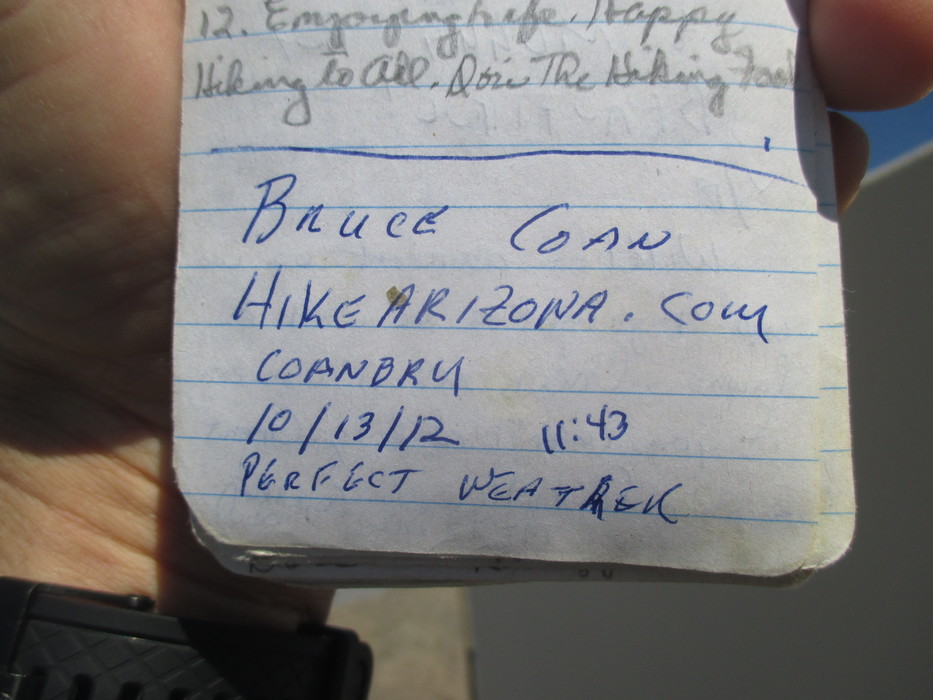 12. Enjoying Life. Happy
Hiking to All. The Hiking
BRUCE COAN
HIKEARIZONA.COM
COANBRU
10/13/12 11:43
PERFECT WEATHER